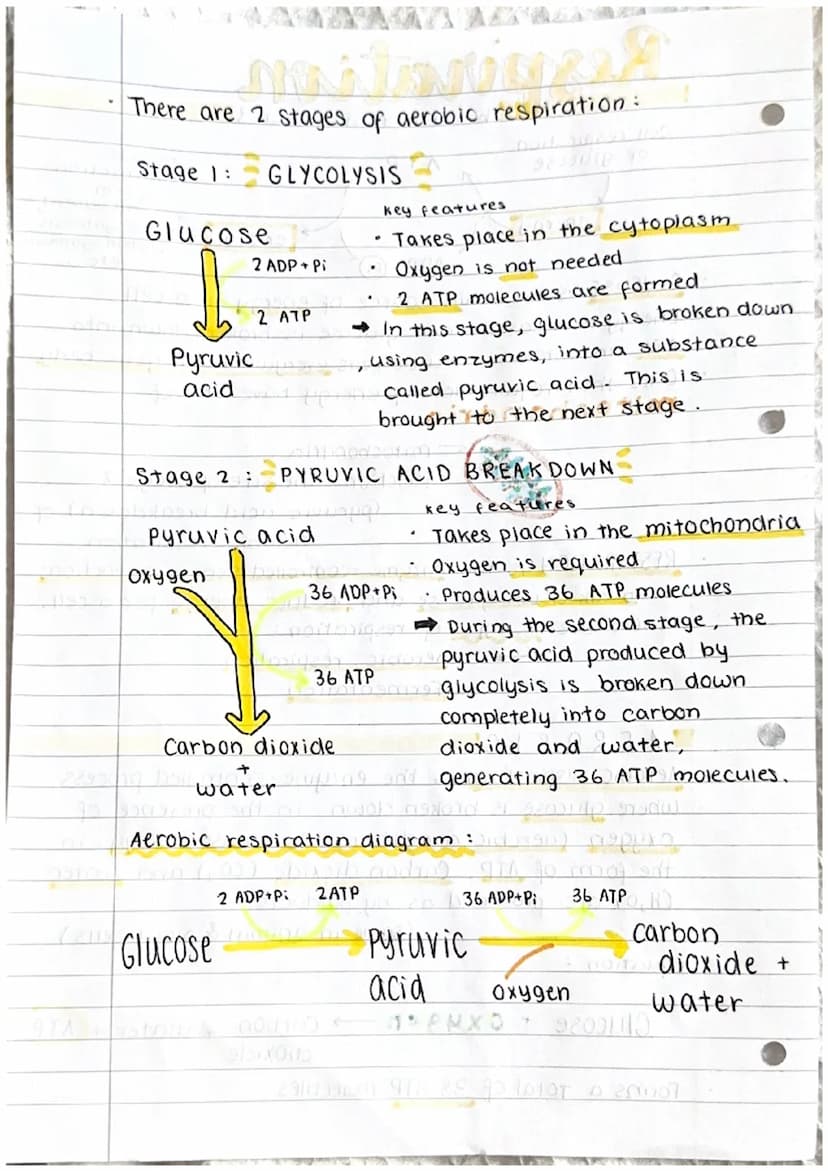 · There are 2 stages of aerobic respiration:
Stage 1: GLYCOLYSIS
Glucose
2 ADP + Pi
2 ATP
Pyruvic
acid
Key features
· Takes place in the cytoplasm
· Oxygen is not needed
· 2 ATP molecules are formed
→ In this stage, glucose is broken down
, using enzymes, into a substance
called pyruvic acid. This is
brought to the next stage.
Stage 2: PYRUVIC ACID BREAKDOWN
Pyruvic acid
Oxygen
36 ADP+Pi
36 ATP
Carbon dioxide
+
water
Key features
· Takes place in the mitochondria
· Oxygen is required
· Produces 36 ATP molecules
→ During the second stage, the
pyruvic acid produced by
glycolysis is broken down
completely into carbon
dioxide and water,
generating 36 ATP molecules.
Aerobic respiration diagram:
2 ADP+Pi 2ATP 36 ADP+Pi 36 ATP
Glucose → Pyruvic → carbon
acid oxygen dioxide +
water